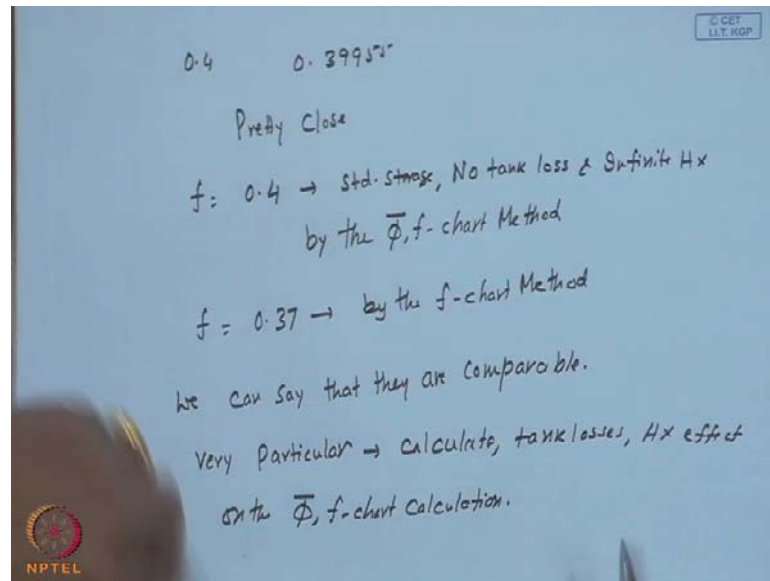 © CET
I.I.T. KGP
0.4 0.39955
Pretty Close
f = 0.4 → Std. Storage, No tank loss & Infinite Hx
by the Φ̅, f-chart Method
f = 0.37 → by the f-chart Method
We can say that they are comparable.
Very Particular → Calculate, tank losses, Hx effect
on the Φ̅, f-chart Calculation.
NPTEL